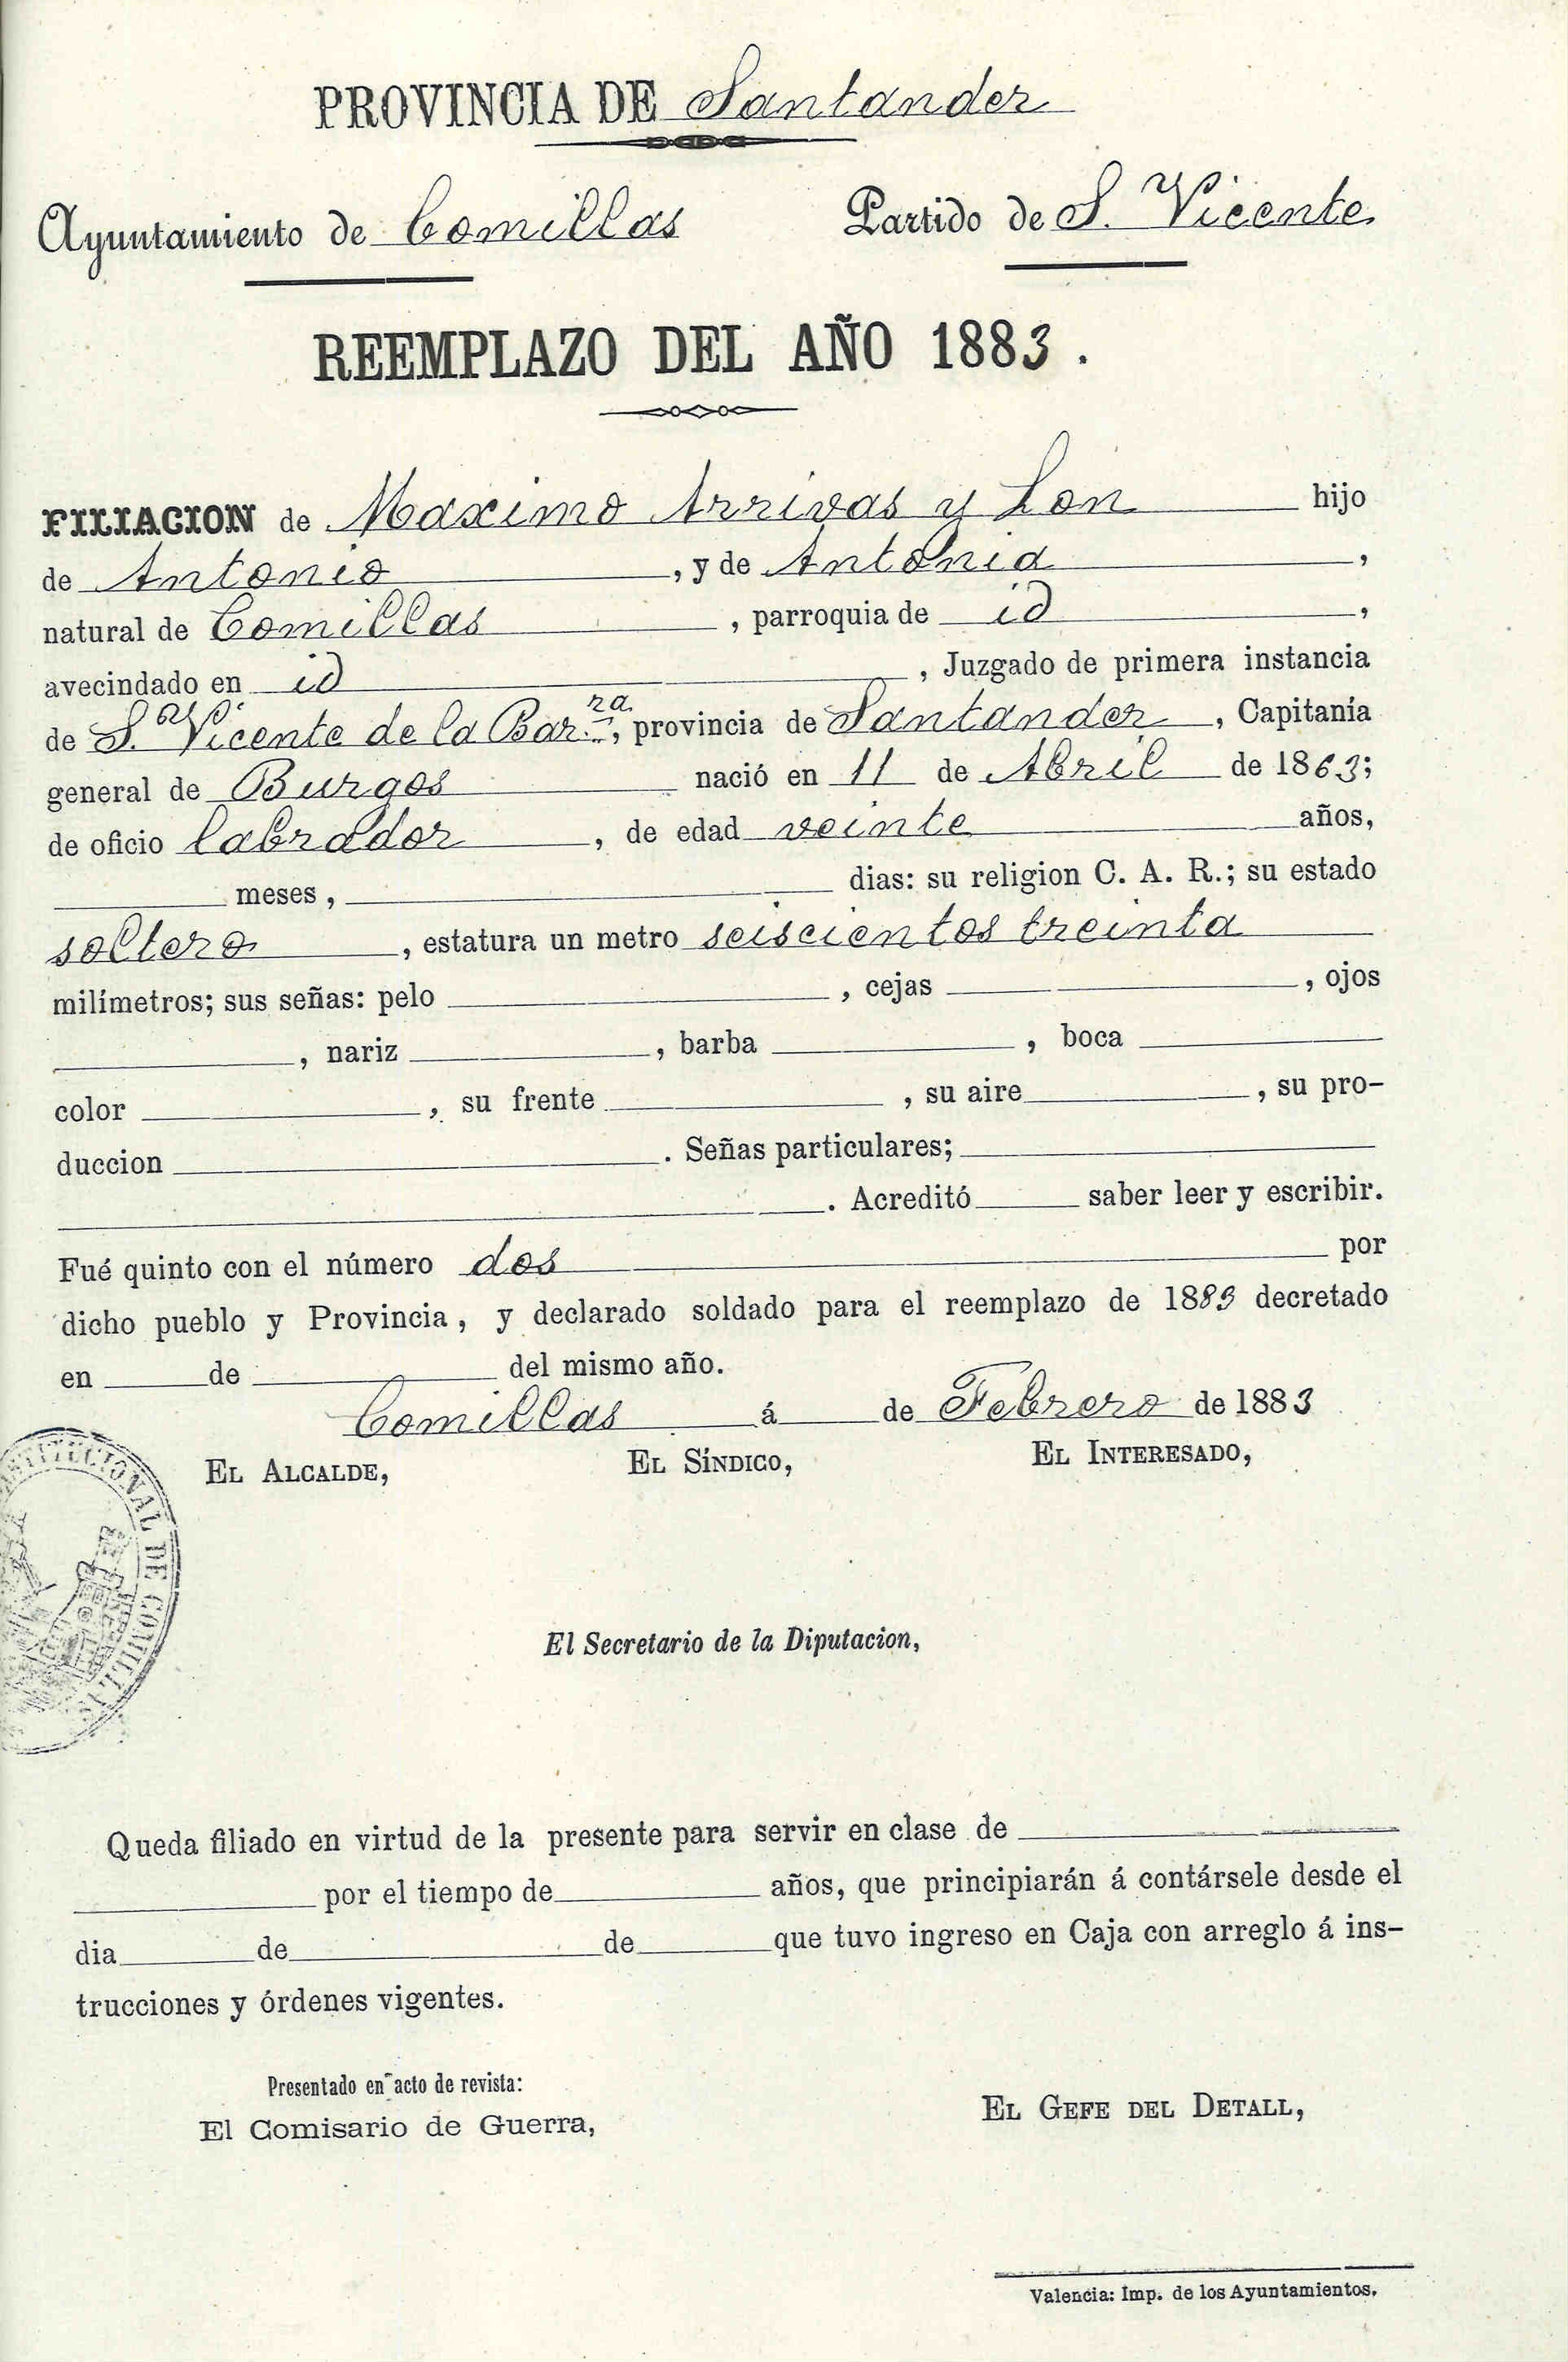 PROVINCIA DE Santander
Ayuntamiento de Comillas Partido de S. Vicente
REEMPLAZO DEL AÑO 1883.
FILIACION de Maximo Arrivas y Lon hijo
de Antonio, y de Antonia,
natural de Comillas, parroquia de id,
avecindado en id, Juzgado de primera instancia
de S. Vicente de la Bar.ra, provincia de Santander, Capitanía
general de Burgos nació en 11 de Abril de 1863;
de oficio labrador, de edad veinte años,
meses, dias: su religion C. A. R.; su estado
soltero, estatura un metro seiscientos treinta
milímetros; sus señas: pelo, cejas, ojos
, nariz, barba, boca
color, su frente, su aire, su pro-
duccion. Señas particulares;
. Acreditó saber leer y escribir.
Fué quinto con el número dos por
dicho pueblo y Provincia, y declarado soldado para el reemplazo de 1883 decretado
en de del mismo año.
Comillas á de Febrero de 1883
EL ALCALDE, EL SÍNDICO, EL INTERESADO,
CONAL DE COMILLAS
El Secretario de la Diputacion,
Queda filiado en virtud de la presente para servir en clase de
por el tiempo de años, que principiarán á contársele desde el
dia de de que tuvo ingreso en Caja con arreglo á ins-
trucciones y órdenes vigentes.
Presentado en acto de revista:
El Comisario de Guerra, EL GEFE DEL DETALL,
Valencia: Imp. de los Ayuntamientos.